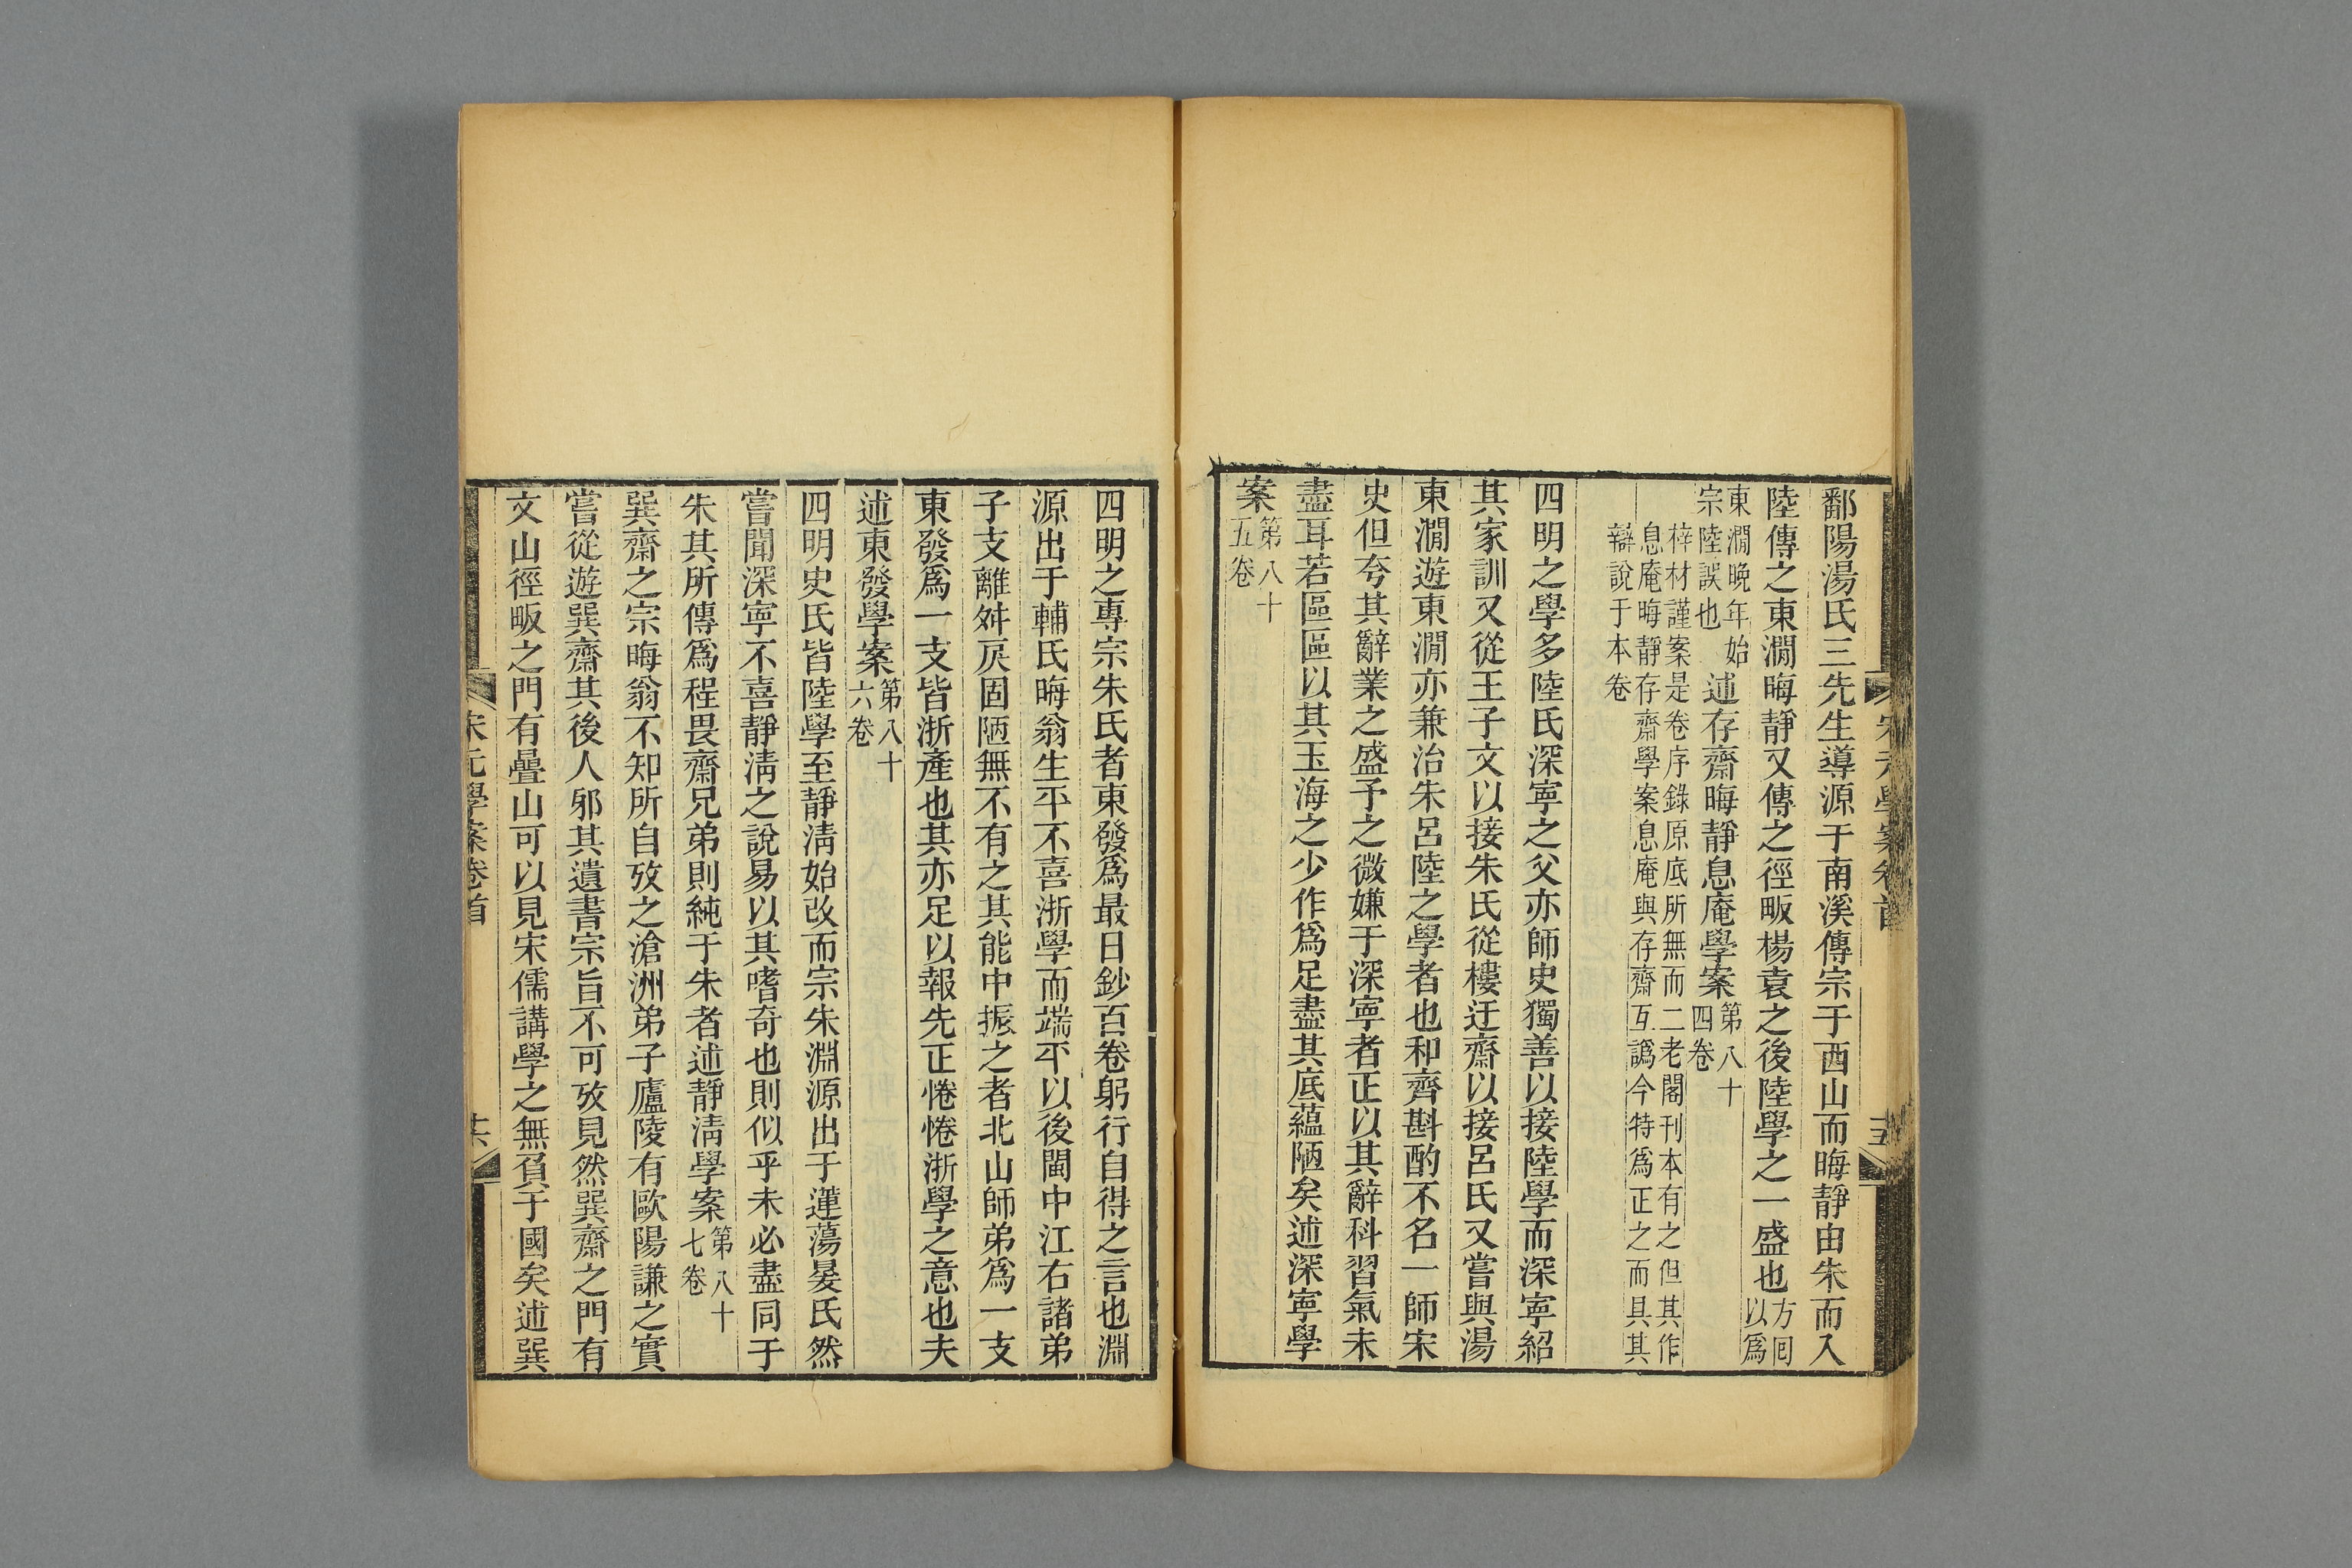 鄱陽湯氏三先生導源于南溪傳宗于西山而晦靜由朱而入
陸傳之東澗晦靜又傳之徑畈楊袁之後陸學之一盛也方回以爲
東澗晚年始宗陸誤也述存齋晦靜息庵學案第八十四卷
梓材謹案是卷序錄原底所無而二老閣刊本有之但其作
息庵晦靜存齋學案息庵與存齋互譌今特爲正之而具其
辯說于本卷
四明之學多陸氏深寧之父亦師史獨善以接陸學而深寧紹
其家訓又從王子文以接朱氏從樓迂齋以接呂氏又嘗與湯
東澗遊東澗亦兼治朱呂陸之學者也和齊斟酌不名一師宋
史但夸其辭業之盛予之微嫌于深寧者正以其辭科習氣未
盡耳若區區以其玉海之少作爲足盡其底蘊陋矣述深寧學
案第八十五卷
宋元學案卷首
四明之專宗朱氏者東發爲最日鈔百卷躬行自得之言也淵
源出于輔氏晦翁生平不喜浙學而端平以後閩中江右諸弟
子支離舛戾固陋無不有之其能中振之者北山師弟爲一支
東發爲一支皆浙產也其亦足以報先正惓惓浙學之意也夫
述東發學案第八十六卷
四明史氏皆陸學至靜清始改而宗朱淵源出于蓮蕩晏氏然
嘗聞深寧不喜靜清之說易以其嗜奇也則似乎未必盡同于
朱其所傳爲程畏齋兄弟則純于朱者述靜清學案第八十七卷
巽齋之宗晦翁不知所自攷之滄洲弟子廬陵有歐陽謙之實
嘗從遊巽齋其後人邪其遺書宗旨不可攷見然巽齋之門有
文山徑畈之門有疊山可以見宋儒講學之無負于國矣述巽
宋元學案卷首